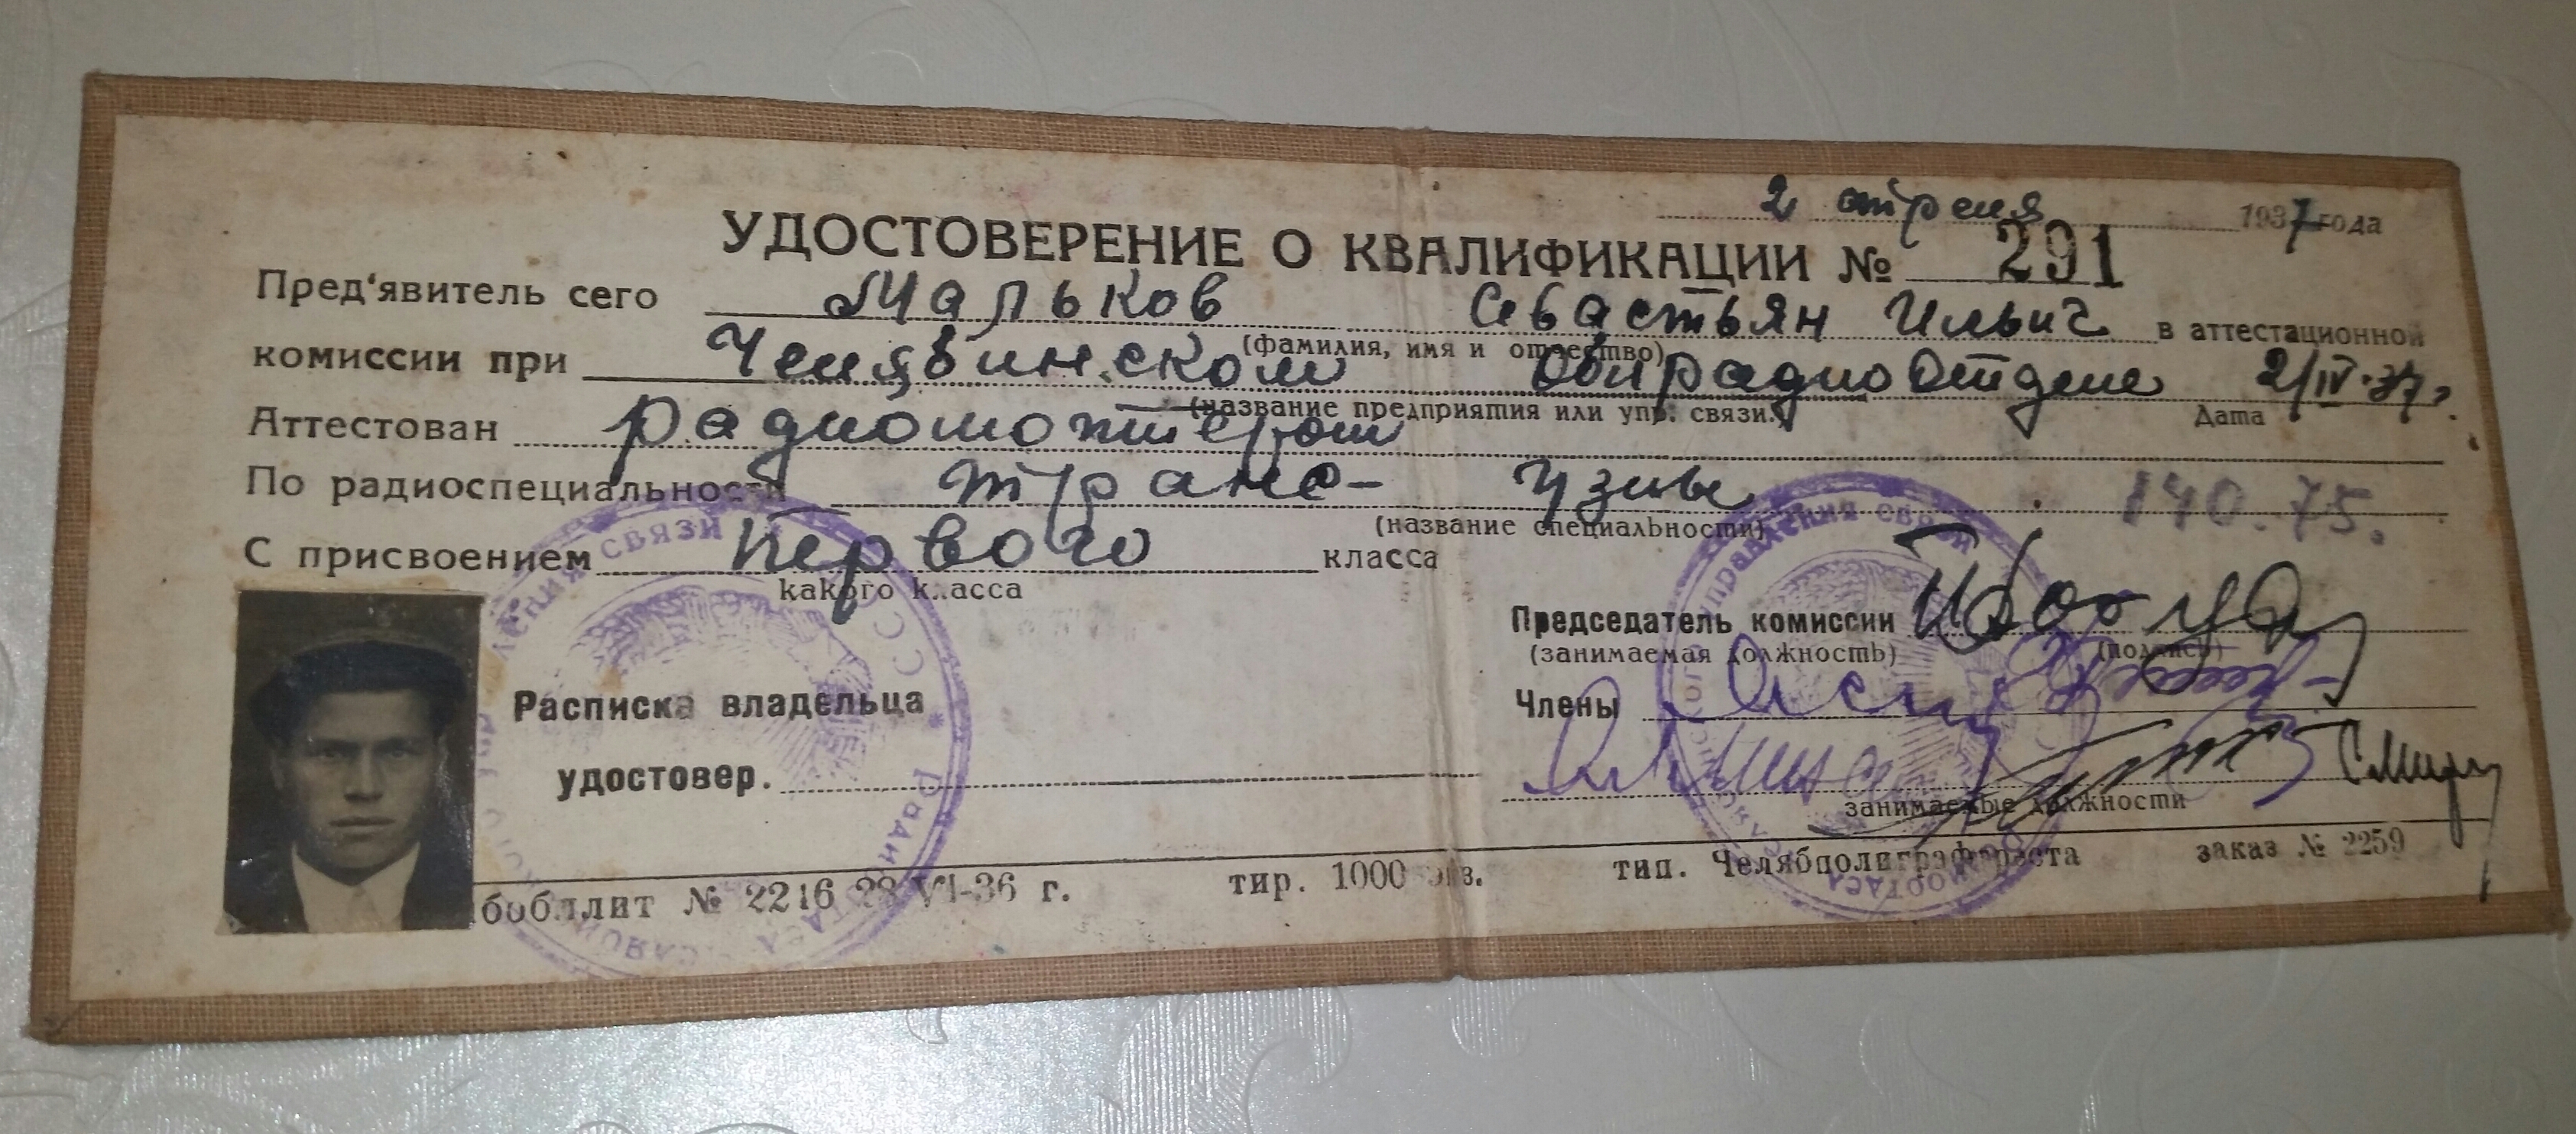 2 апреля 1937 года
УДОСТОВЕРЕНИЕ О КВАЛИФИКАЦИИ № 291
Пред'явитель сего Мальков Севастьян Ильич в аттестационной
(фамилия, имя и отчество)
комиссии при Челябинском Облрадиоотделе 2/IV-37г.
(название предприятия или упр. связи) Дата
Аттестован радиомонтером
По радиоспециальности транс- узлы 140.75.
(название специальности)
С присвоением первого класса
какого класса
Председатель комиссии
(занимаемая должность) (подпись)
Расписка владельца
Члены
удостовер.
занимаемые должности
бобллит № 2216 28 VI-36 г. тир. 1000 экз. тип. Челябполиграфтреста заказ № 2259